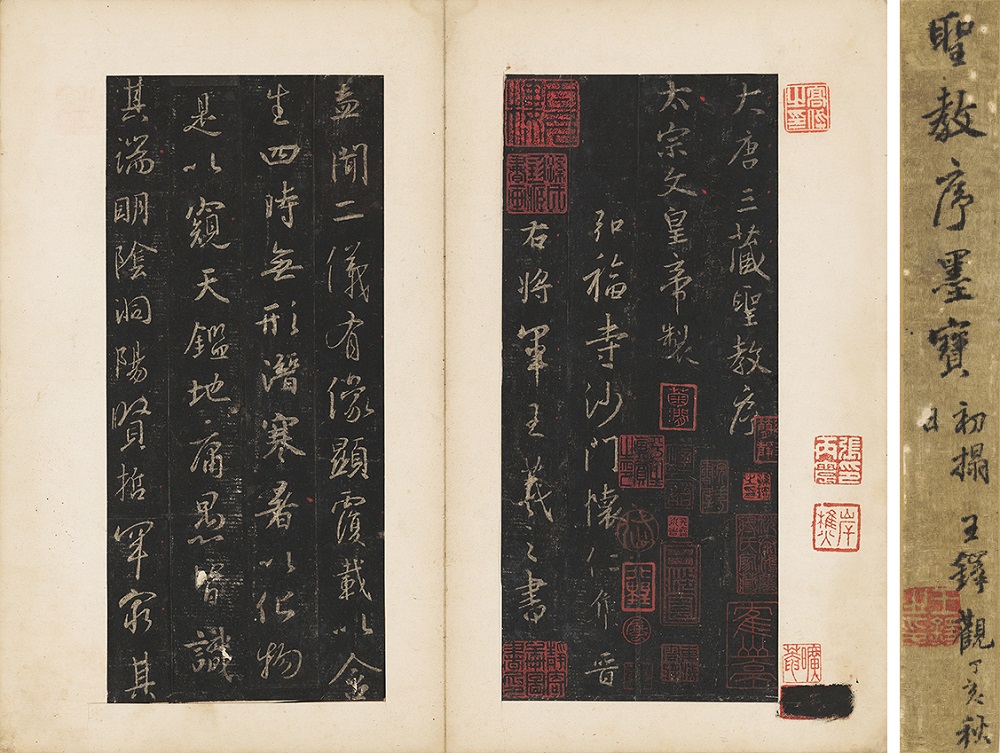 聖教序墨寶
初搨 王鐸觀 丁亥秋
日
大唐三藏聖教序
太宗文皇帝製
弘福寺沙門懷仁集 晉
右將軍王羲之書
蓋聞二儀有像顯覆載以含
生四時無形潛寒暑以化物
是以窺天鑑地庸愚皆識
其端明陰洞陽賢哲罕窮其